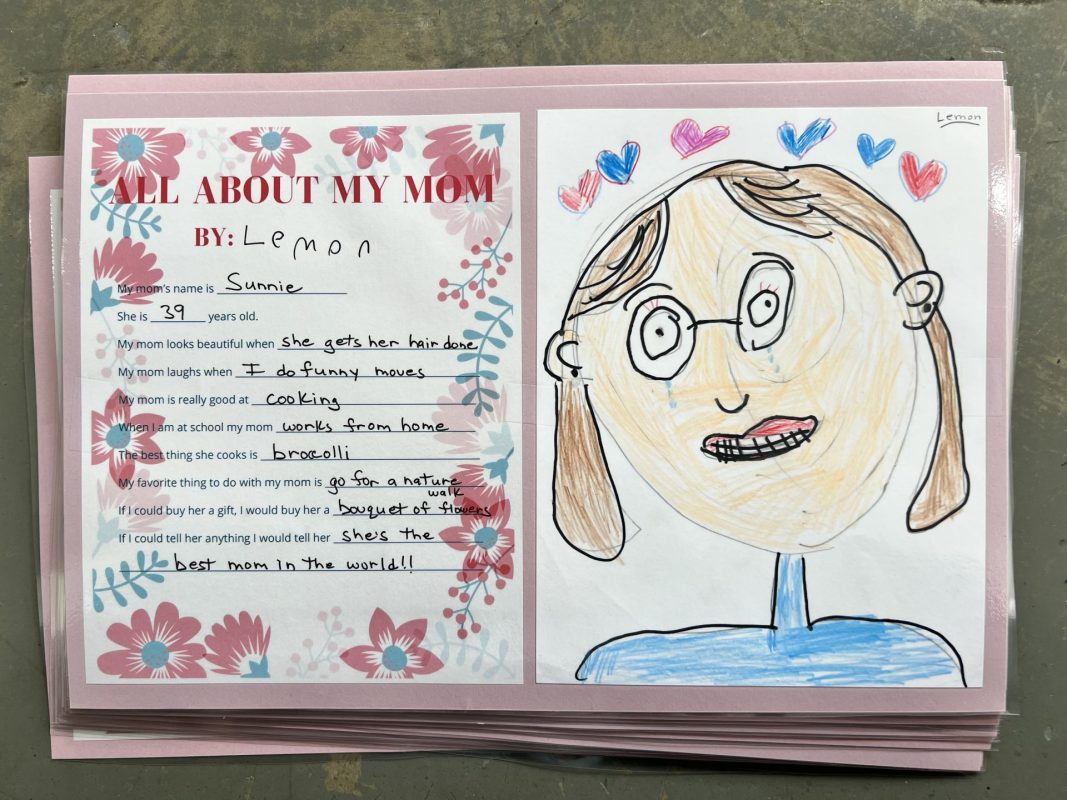 ALL ABOUT MY MOM
BY: Lemon
My mom's name is Sunnie
She is 39 years old.
My mom looks beautiful when she gets her hair done
My mom laughs when I do funny moves
My mom is really good at cooking
When I am at school my mom works from home
The best thing she cooks is broccolli
My favorite thing to do with my mom is go for a nature
walk
If I could buy her a gift, I would buy her a bouquet of flowers
If I could tell her anything I would tell her she's the
best mom in the world!!
Lemon